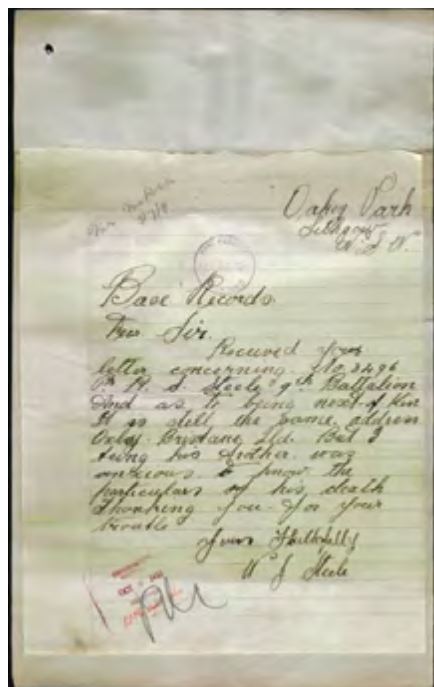 Oakey Park
Lithgow
N. S. W.
Base Records
Dear Sir.
Received your
letter concerning No. 3496
Pte R. S. Steele 9th Battalion
And as to being next of Kin
It is still the same address
Brisbane Qld. But I
being his brother was
anxious to know the
particulars of his death
Thanking you for your
trouble
Yours Faithfully
W J Steele